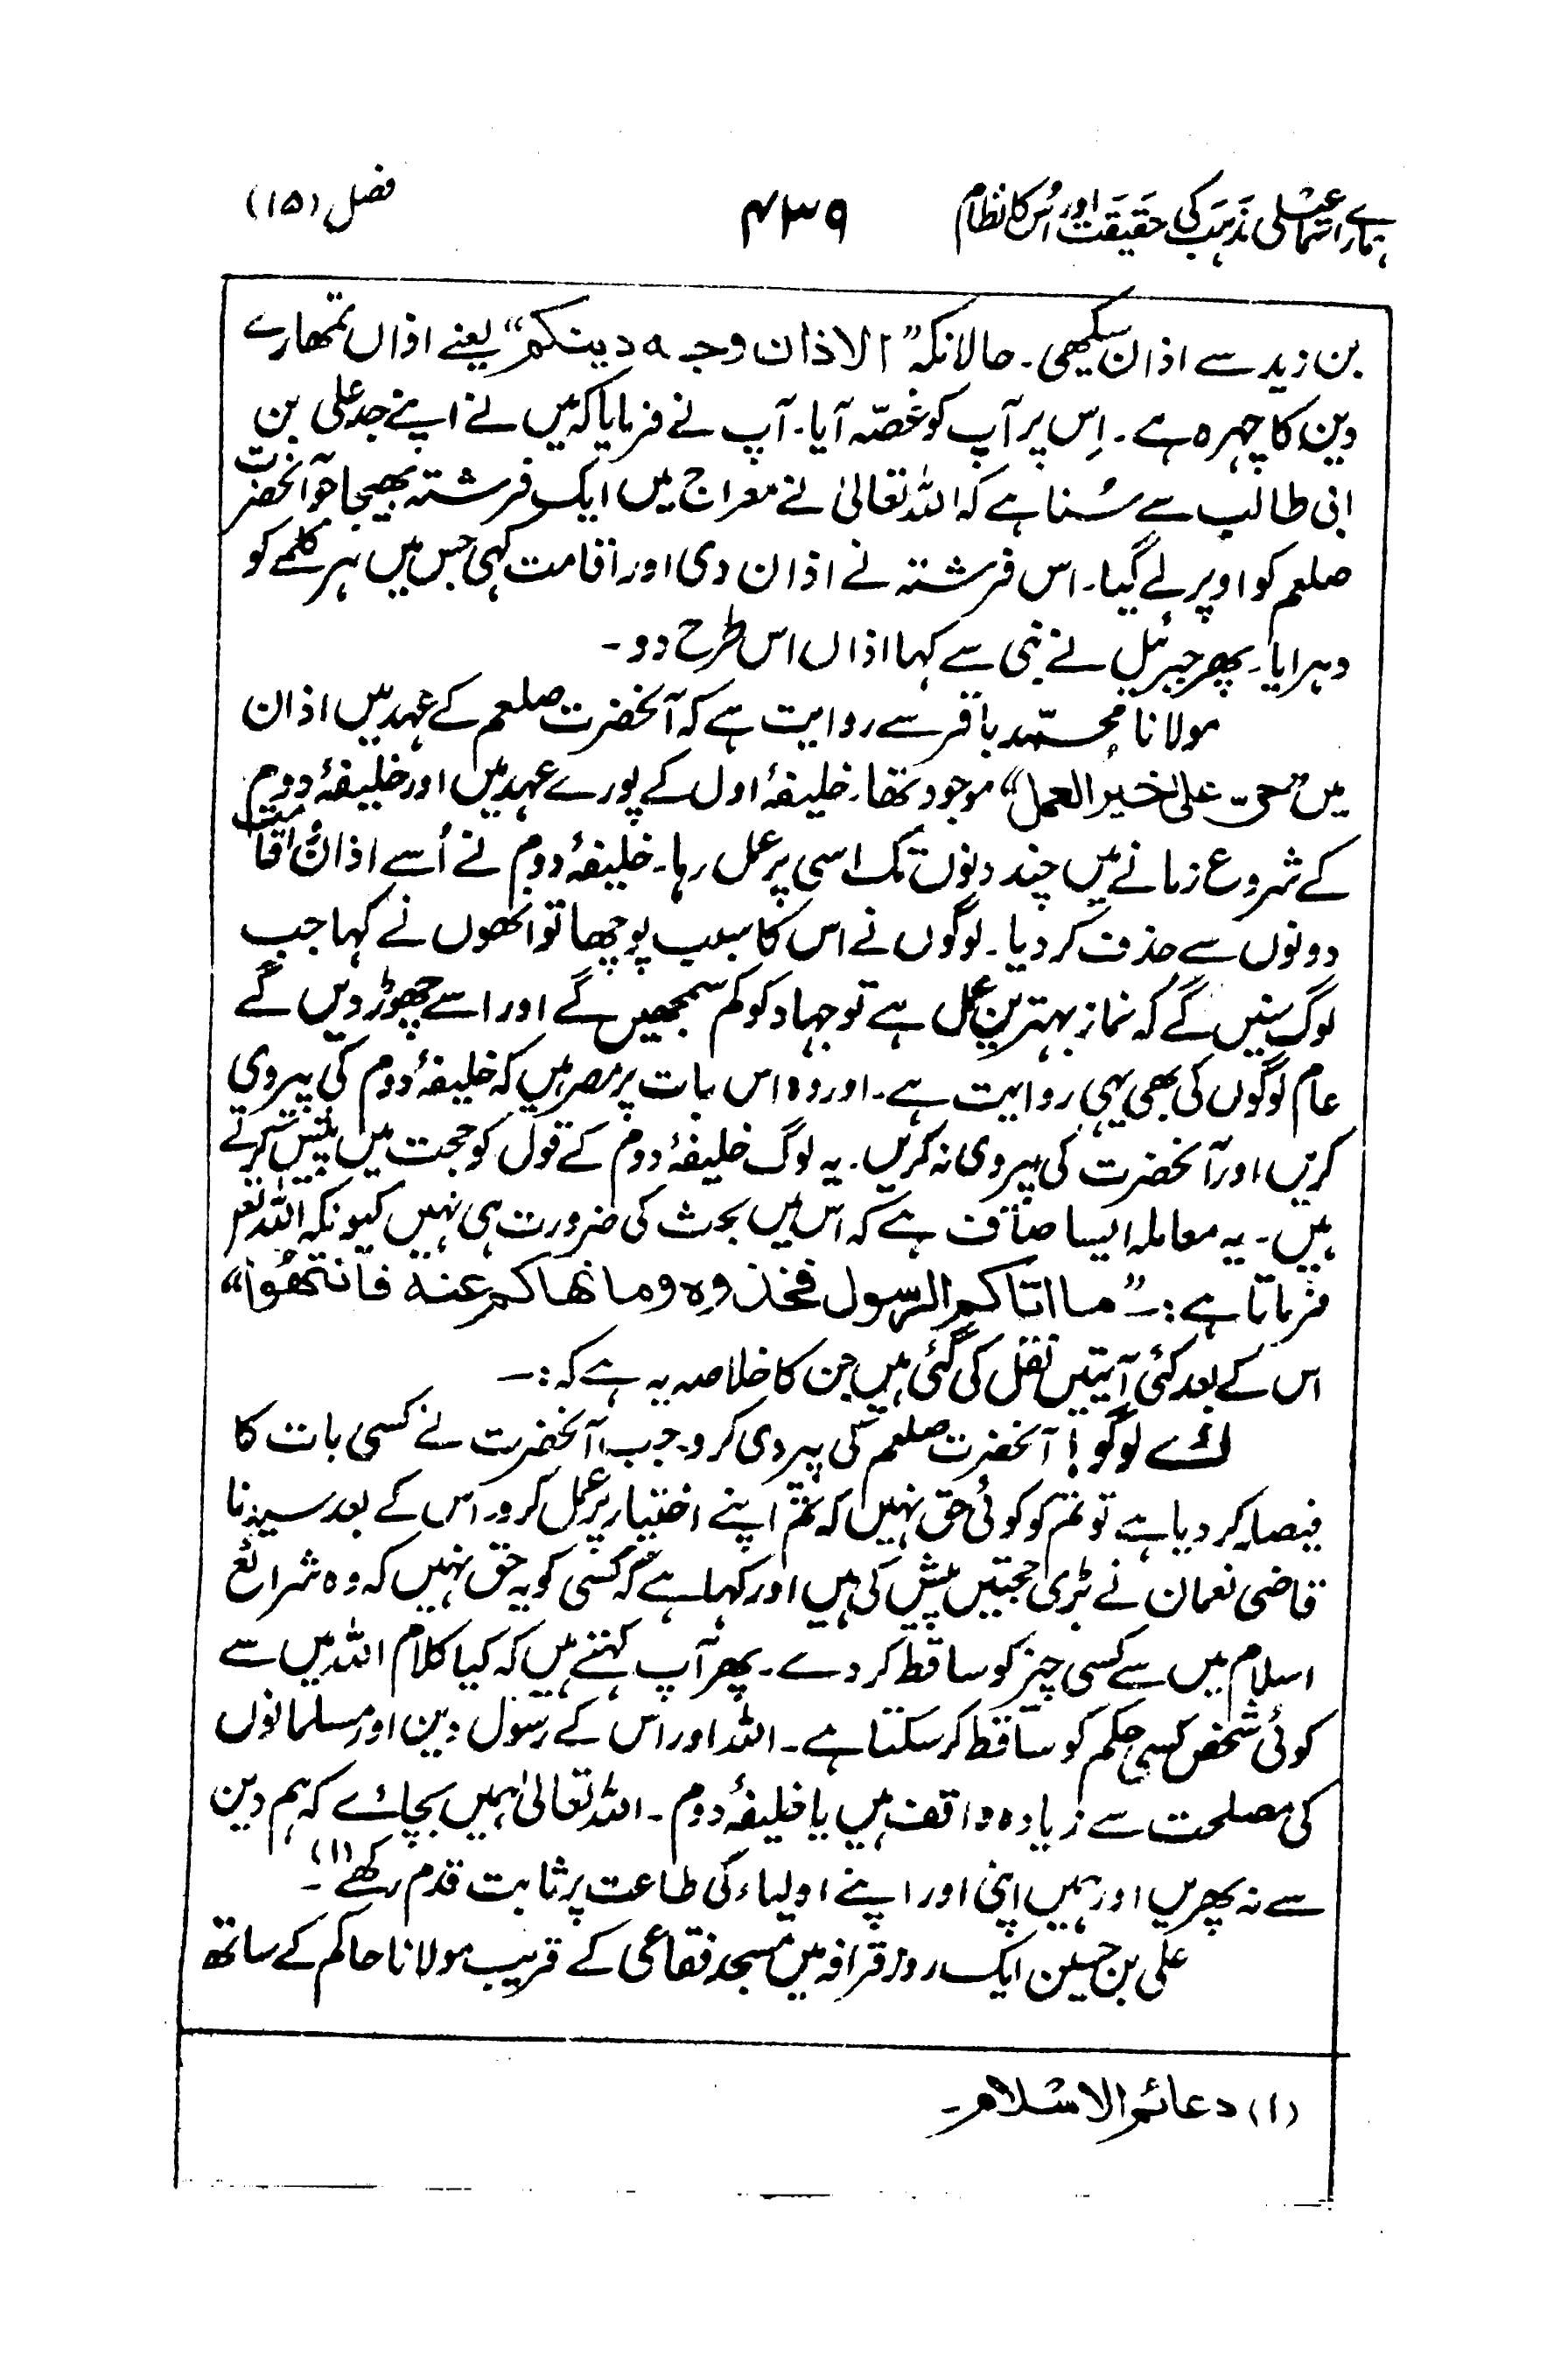 ہمارے اسماعیلی مذہب کی حقیقت اور اُس کا نظام
۴۳۹
فصل (۱۵)
بن زید سے اذان سیکھی۔ حالانکہ ”الاذان وجہ دینکم“ یعنے اذاں تمھارے
دین کا چہرہ ہے۔ اِس پر آپ کو غصّہ آیا۔ آپ نے فرمایا کہ میں نے اپنے جد علی بن
ابی طالب سے سُنا ہے کہ اللہ تعالیٰ نے معراج میں ایک فرشتہ بھیجا جو آنحضرت
صلعم کو اوپر لے گیا۔ اس فرشتہ نے اذان دی اور اقامت کہی جس میں ہر کلمے کو
دہرایا۔ پھر جبرئیل نے نبی سے کہا اذاں اس طرح دو۔
مولانا محمّد باقر سے روایت ہے کہ آنحضرت صلعم کے عہد میں اذان
میں ”حیّ علیٰ خیر العمل“ موجود تھا۔ خلیفۂ اول کے پورے عہد میں اور خلیفۂ دوم
کے شروع زمانے میں چند دنوں تک اسی پر عمل رہا۔ خلیفۂ دوم نے اُسے اذان و اقامت
دونوں سے حذف کر دیا۔ لوگوں نے اس کا سبب پوچھا تو انھوں نے کہا جب
لوگ سنیں گے کہ نماز بہترین عمل ہے تو جہاد کو کم سمجھیں گے اور اسے چھوڑ دیں گے
عام لوگوں کی بھی یہی روایت ہے۔ اور وہ اس بات پر مصر ہیں کہ خلیفۂ دوم کی پیروی
کریں اور آنحضرت کی پیروی نہ کریں۔ یہ لوگ خلیفۂ دوم کے قول کو حجت میں پیش کرتے
ہیں۔ یہ معاملہ ایسا صاف ہے کہ اس میں بحث کی ضرورت ہی نہیں کیونکہ اللہ تعہ
فرماتا ہے:۔ ”ما اتاکم الرسول فخذوہ وما نھاکم عنہ فانتھوا“
اس کے بعد کئی آیتیں نقل کی گئی ہیں جن کا خلاصہ یہ ہے کہ:۔
اے لوگو! آنحضرت صلعم کی پیروی کرو۔ جب آنحضرت نے کسی بات کا
فیصلہ کر دیا ہے تو تم کو کوئی حق نہیں کہ تم اپنے اختیار پر عمل کرو۔ اس کے بعد سیدنا
قاضی نعمان نے بڑی حجتیں پیش کی ہیں اور کہا ہے کہ کسی کو یہ حق نہیں کہ وہ شرائع
اسلام میں سے کسی چیز کو ساقط کر دے۔ پھر آپ کہتے ہیں کہ کیا کلام اللہ میں سے
کوئی شخص کسی حکم کو ساقط کر سکتا ہے۔ اللہ اور اس کے رسول دین اور مسلمانوں
کی مصلحت سے زیادہ واقف ہیں یا خلیفۂ دوم۔ اللہ تعالیٰ ہمیں بچائے کہ ہم دین
سے نہ پھریں اور ہمیں اپنی اور اپنے اولیاء کی طاعت پر ثابت قدم رکھے (۱)۔
علی بن حسین ایک روز قرافہ میں مسجد فقاعی کے قریب مولانا حاکم کے ساتھ
(۱) دعائم الاسلام۔